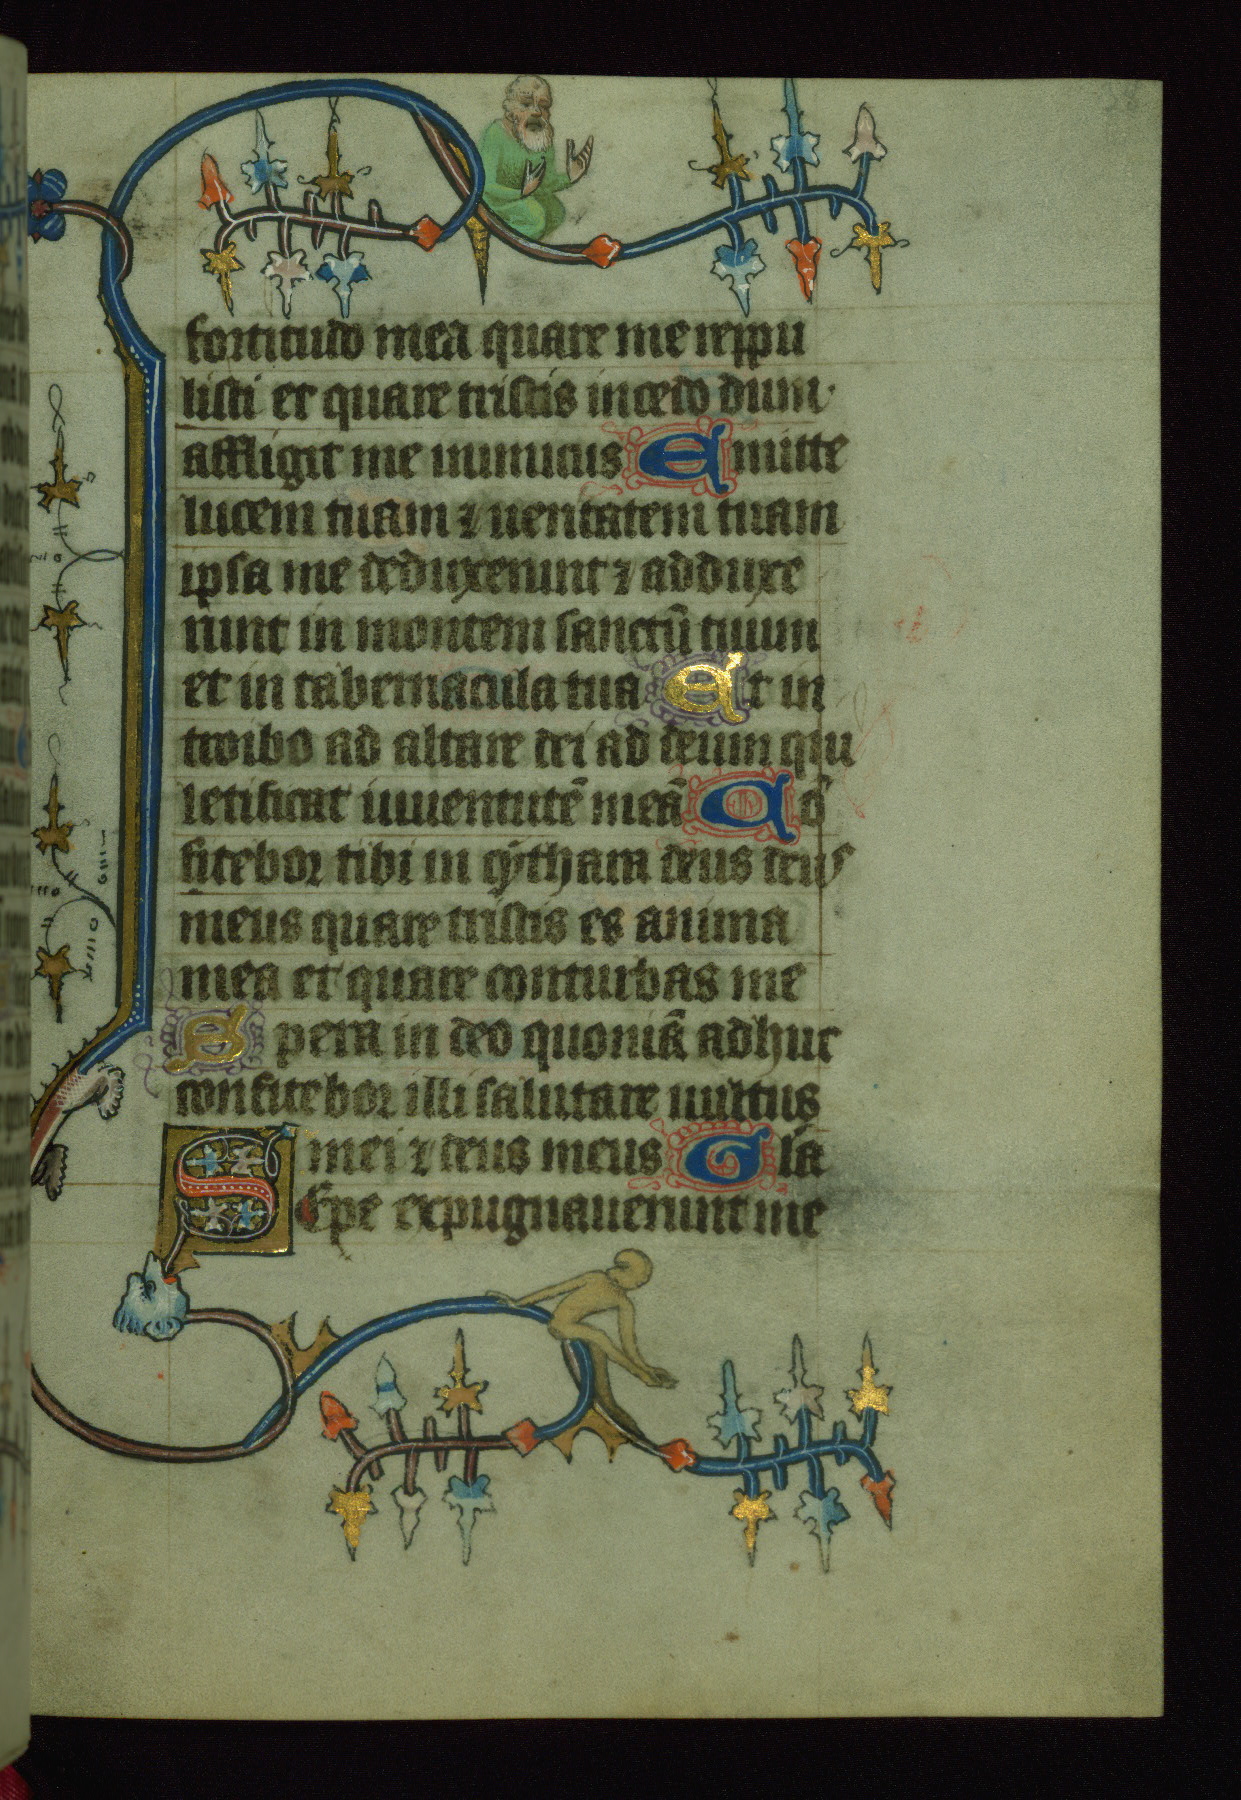 fortitudo mea quare me reppu
listi et quare tristis incedo dum
affligit me inimicus Emitte
lucem tuam ⁊ ueritatem tuam
ipsa me deduxerunt ⁊ adduxe
runt in montem sanctū tuum
et in tabernacula tua Et in
troibo ad altare dei ad deum qui
letificat iuuentutē meā Cō
fitebor tibi in cythara deus deus
meus quare tristis es anima
mea et quare conturbas me
Spera in deo quoniā adhuc
confitebor illi salutare uultus
mei ⁊ deus meus Glā
Sepe expugnauerunt me